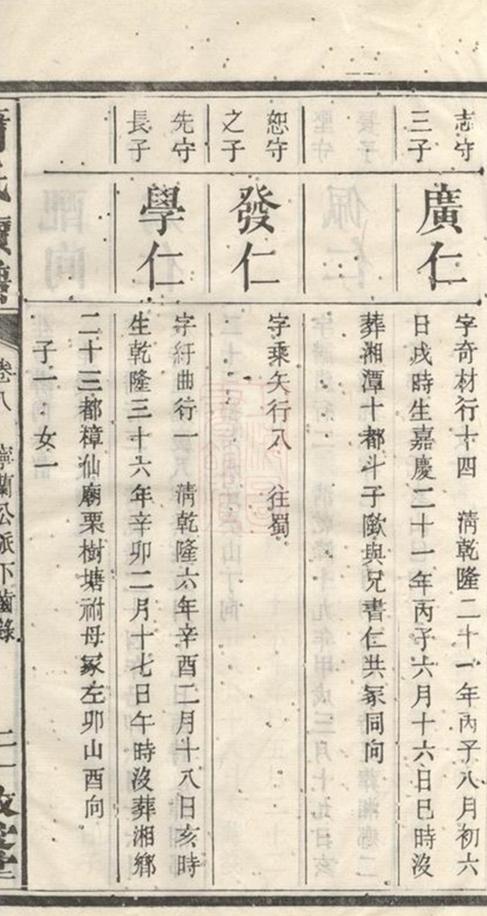 志守
三子
廣仁
字奇材行十四 清乾隆二十一年丙子八月初六
日戌時生嘉慶二十一年丙子六月十六日巳時沒
葬湘潭十都斗子歞與兄書仁共冢同向
恕守
之子
發仁
字乘矢行八 往蜀
先守
長子
學仁
字紆曲行一 清乾隆六年辛酉二月十八日亥時
生乾隆三十六年辛卯二月十七日午時沒葬湘鄉
二十三都樟仙廟栗樹塘祔母冢左卯山酉向
子一 女一
卷八 寧蘭公派下齒錄